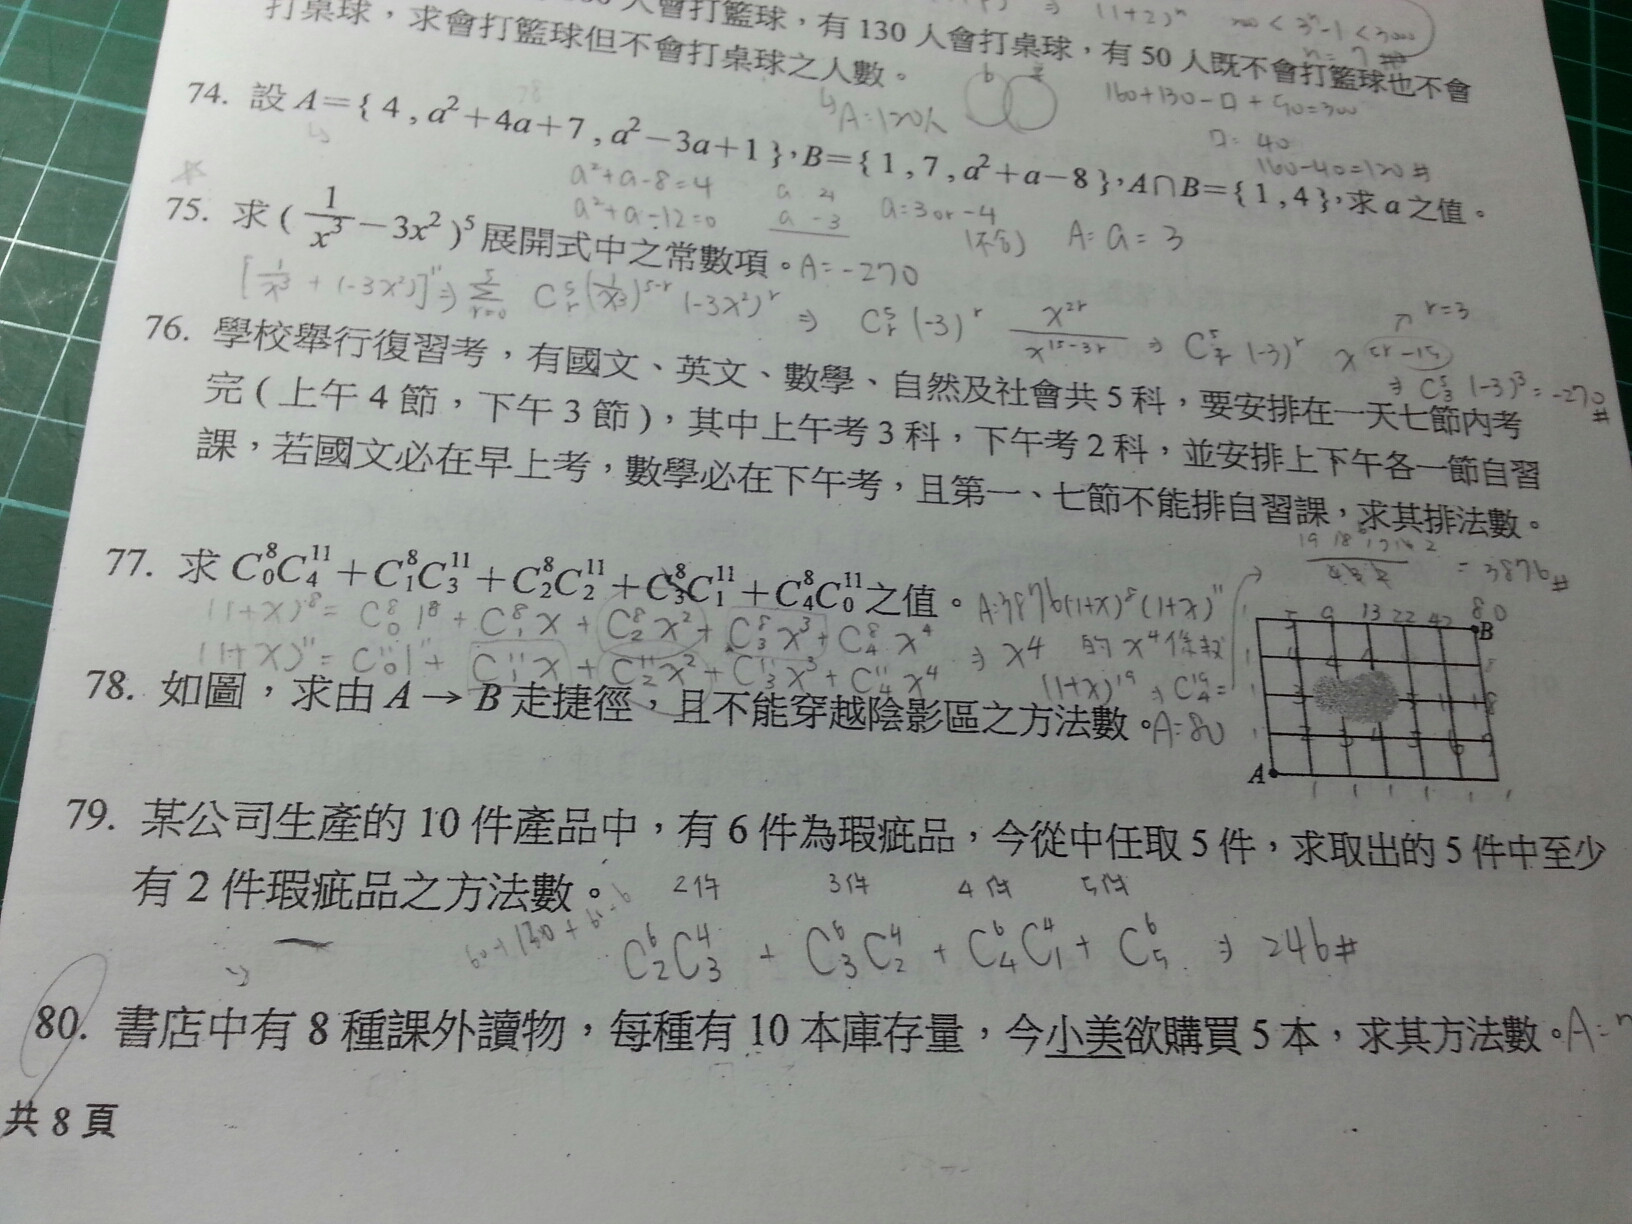 人會打籃球，有 130 人會打桌球，有 50 人既不會打籃球也不會
打桌球，求會打籃球但不會打桌球之人數。
160+130-□+50=300
A=120人
□=40
160-40=120#
74. 設 A={ 4 , a²+4a+7 , a²-3a+1 }，B={ 1 , 7 , a²+a-8 }，A∩B={ 1 , 4 }，求 a 之值。
a²+a-8=4
a²+a-12=0
a 4
a -3
a=3 or -4
(不合)
A= a=3
75. 求 ( 1/x³ - 3x² )⁵ 展開式中之常數項。A=-270
r=3
76. 學校舉行復習考，有國文、英文、數學、自然及社會共 5 科，要安排在一天七節內考
完 ( 上午 4 節，下午 3 節 )，其中上午考 3 科，下午考 2 科，並安排上下午各一節自習
課，若國文必在早上考，數學必在下午考，且第一、七節不能排自習課，求其排法數。
77. 求 C⁸₀C¹¹₄+C⁸₁C¹¹₃+C⁸₂C¹¹₂+C⁸₃C¹¹₁+C⁸₄C¹¹₀ 之值。A=3876 (1+x)⁸(1+x)¹¹
= 3876#
(1+x)⁸= C⁸₀1⁸ + C⁸₁x + C⁸₂x² + C⁸₃x³ + C⁸₄x⁴
(1+x)¹¹= C¹¹₀1¹¹ + C¹¹₁x + C¹¹₂x² + C¹¹₃x³ + C¹¹₄x⁴ ⇒ x⁴ 的 x⁴係數
(1+x)¹⁹ ⇒ C¹⁹₄=
78. 如圖，求由 A → B 走捷徑，且不能穿越陰影區之方法數。A=80
B
A
79. 某公司生產的 10 件產品中，有 6 件為瑕疵品，今從中任取 5 件，求取出的 5 件中至少
有 2 件瑕疵品之方法數。
2件 3件 4件 5件
C⁶₂C⁴₃ + C⁶₃C⁴₂ + C⁶₄C⁴₁ + C⁶₅ ⇒ 246#
80. 書店中有 8 種課外讀物，每種有 10 本庫存量，今小美欲購買 5 本，求其方法數。A=
共 8 頁